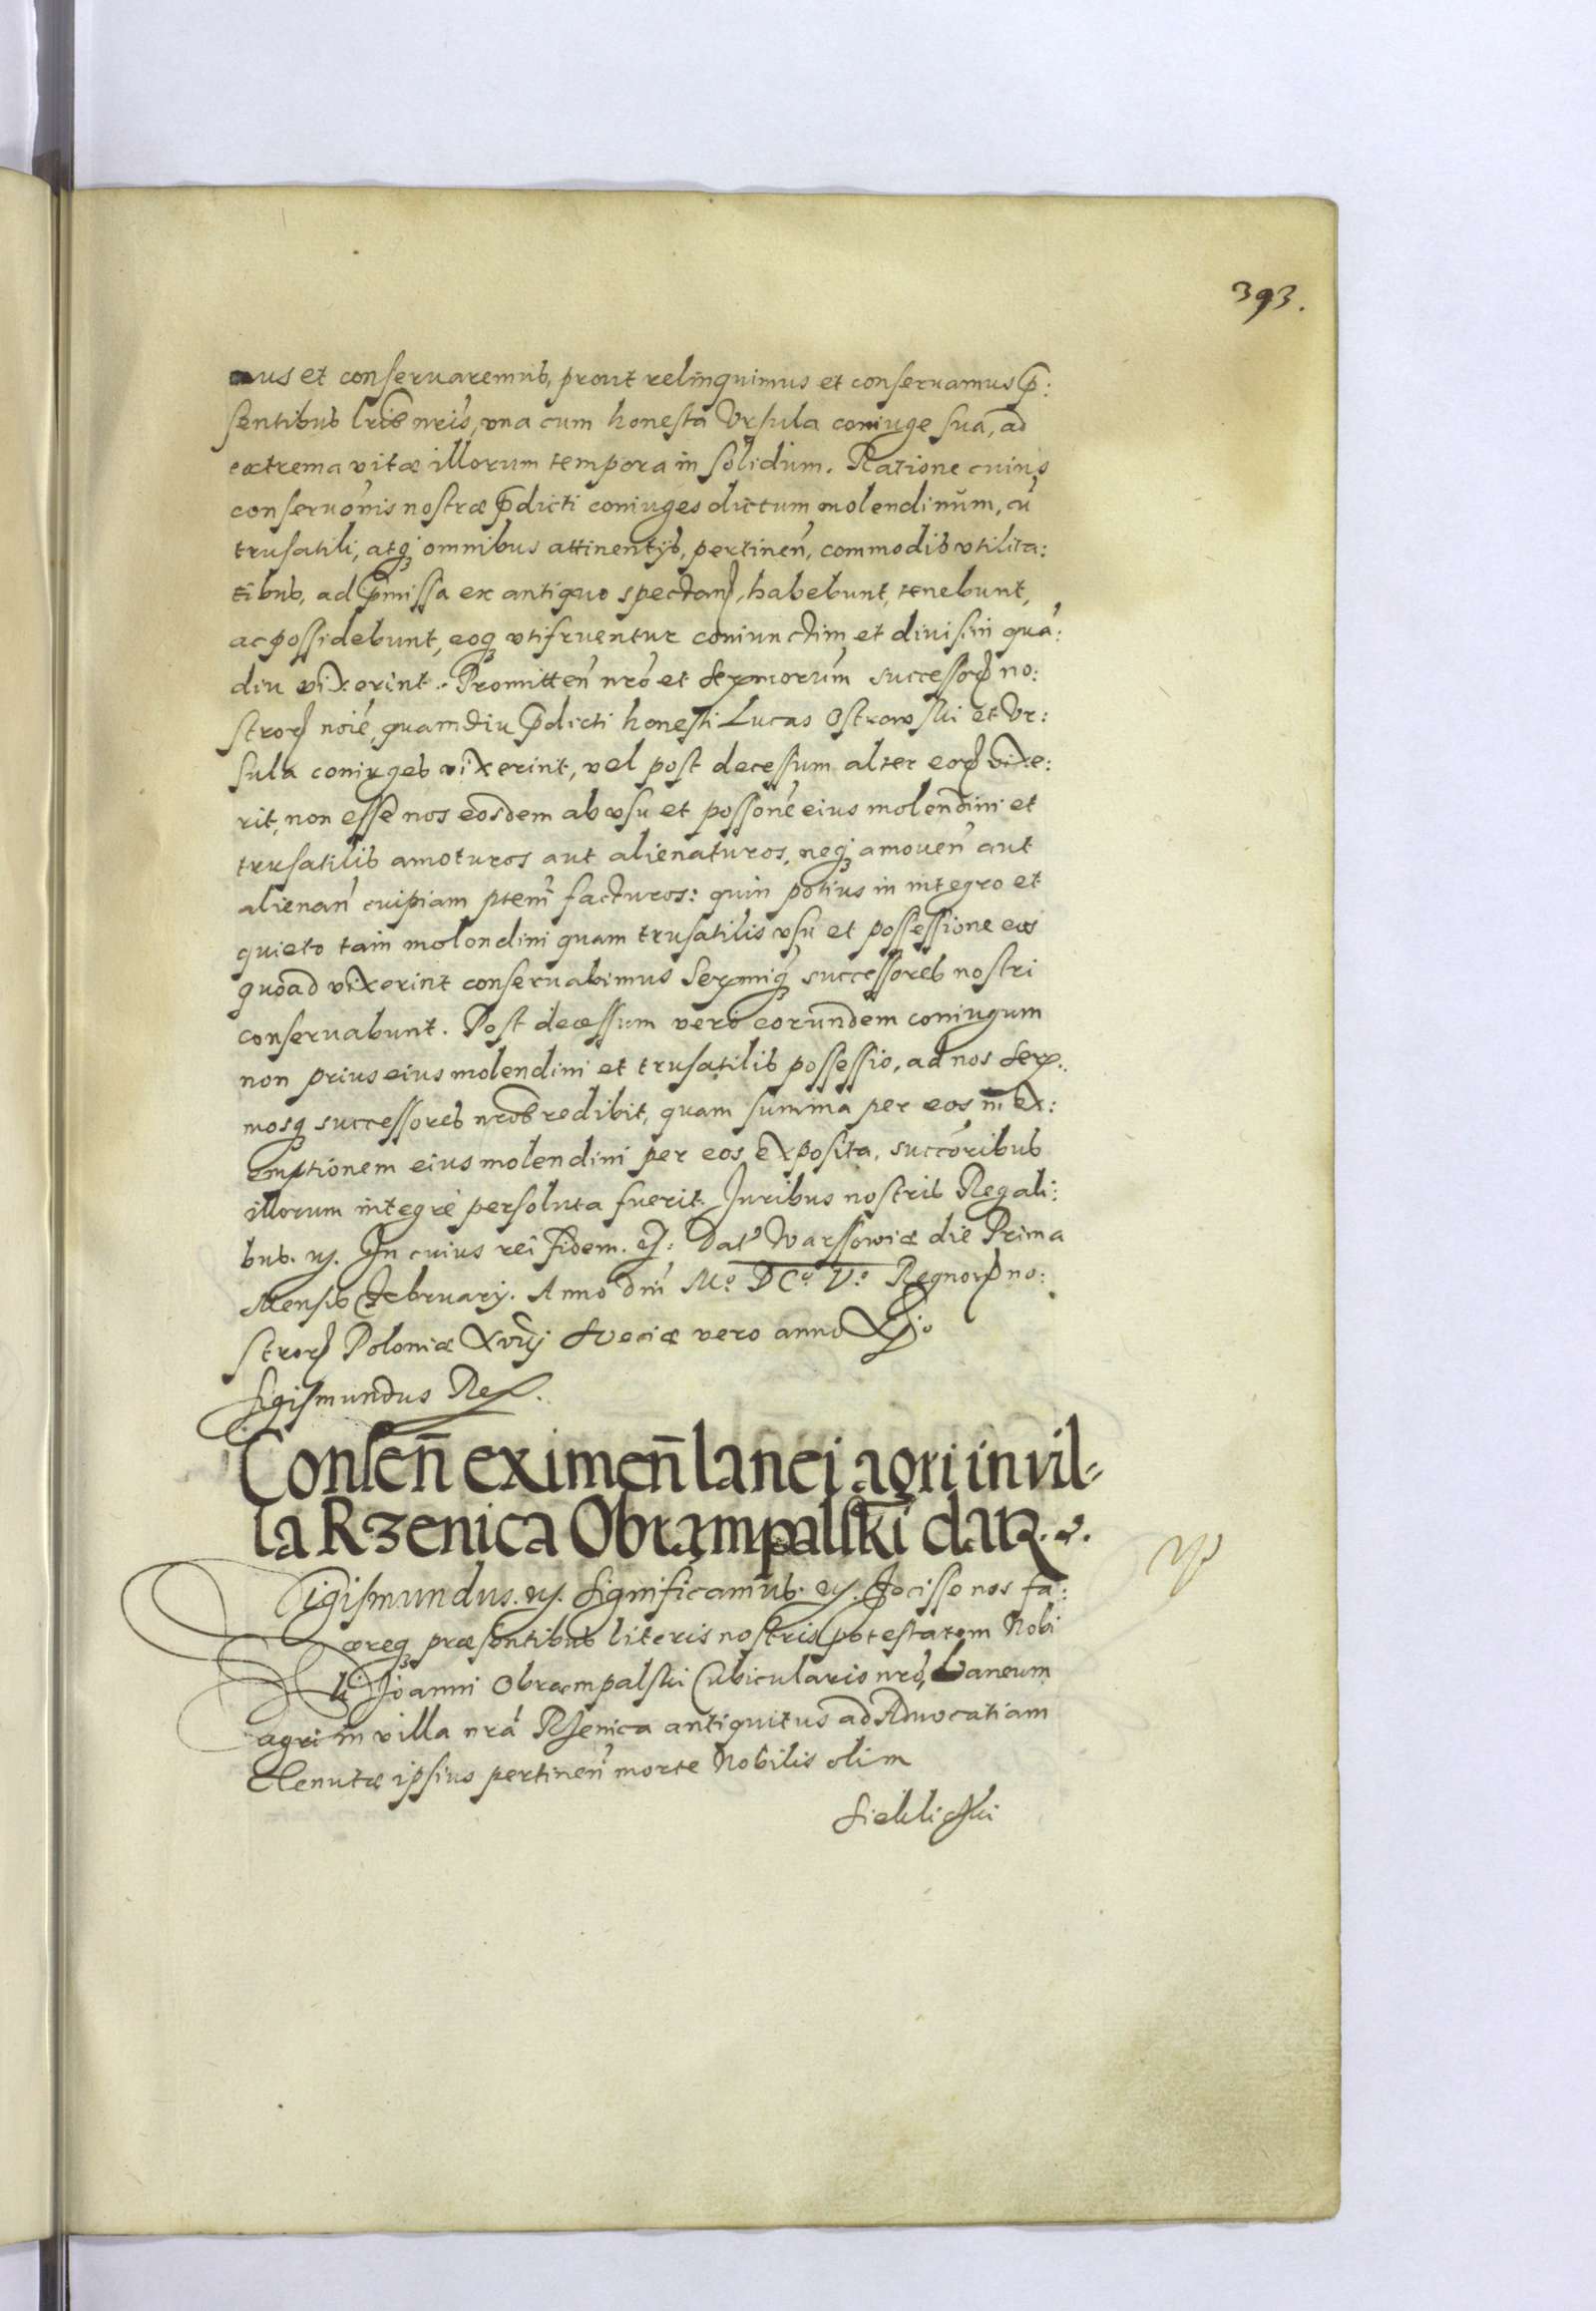 393.
mus et conseruaremus, prout relinquimus et conseruamus p̄:
sentibus lr̄is nr̄is, vna cum honesta Vrsula coniuge sua, ad
extrema vitæ illorum tempora in solidum. Ratione cuius
conseruo͞nis nostræ p̄dicti coniuges dictum molendinum, cū
trusatili, atq₃ omnibus attinentijs, pertineń, commodis vtilita:
tibus, ad p̄missa ex antiquo spectanꝭ, habebunt, tenebunt,
ac possidebunt, eoq₃ vtifruentur coniunctim et diuisim quā:
diu vixerint. Promitteń nrō et Serm̄orum successoꝝ no:
stroꝝ nōie, quamdiu p̄dicti honesti Lucas Ostrowski et Vr:
sula coniuges vixerint, vel post decessum alter eoꝝ vixe:
rit, non esse nos eosdem ab vsu et possōne eius molendini et
trusatilis amoturos aut alienaturos, neq₃ amoueń aut
alienań cuipiam ptēm facturos: quin potius in integro et
quieto tam molendini quam trusatilis vsu et possessione eos
quoad vixerint conseruabimus Serm̄iq₃ successores nostri
conseruabunt. Post decessum vero eorundem coniugum
non prius eius molendini et trusatilis possessio, ad nos Ser:
mosq₃ successores nr̄os redibit, quam summa per eos in ex:
emptionem eius molendini per eos exposita, succōribus
illorum integrè persoluta fuerit. Iuribus nostris Regali:
bus. ꝛc. In cuius rei fidem. ꝛc: Dat' Warssowiæ die Prima
Mensis February. Anno dn̄i Mº. DCº. Vº. Regnoꝝ no:
stroꝝ Poloniæ XVIIJ Sueciæ vero anno XIº
Sigismundus Rex.
Conseñ eximeñ lanei agri in vil=
la Rzenica Obrąmpalski datꝛ.
Sigismundus. ꝛc. Significamus. ꝛc. Fecisse nos fa:
cereq₃ præsentibus literis nostris potestatem Nobi
li Joanni Obræmpalski Cubiculario nr̄o, Laneum
agri in villa nr̄a Rzenica antiquitus ad Aduocatiam
Tenutæ ipsius pertineń morte Nobilis olim
Sieklicki